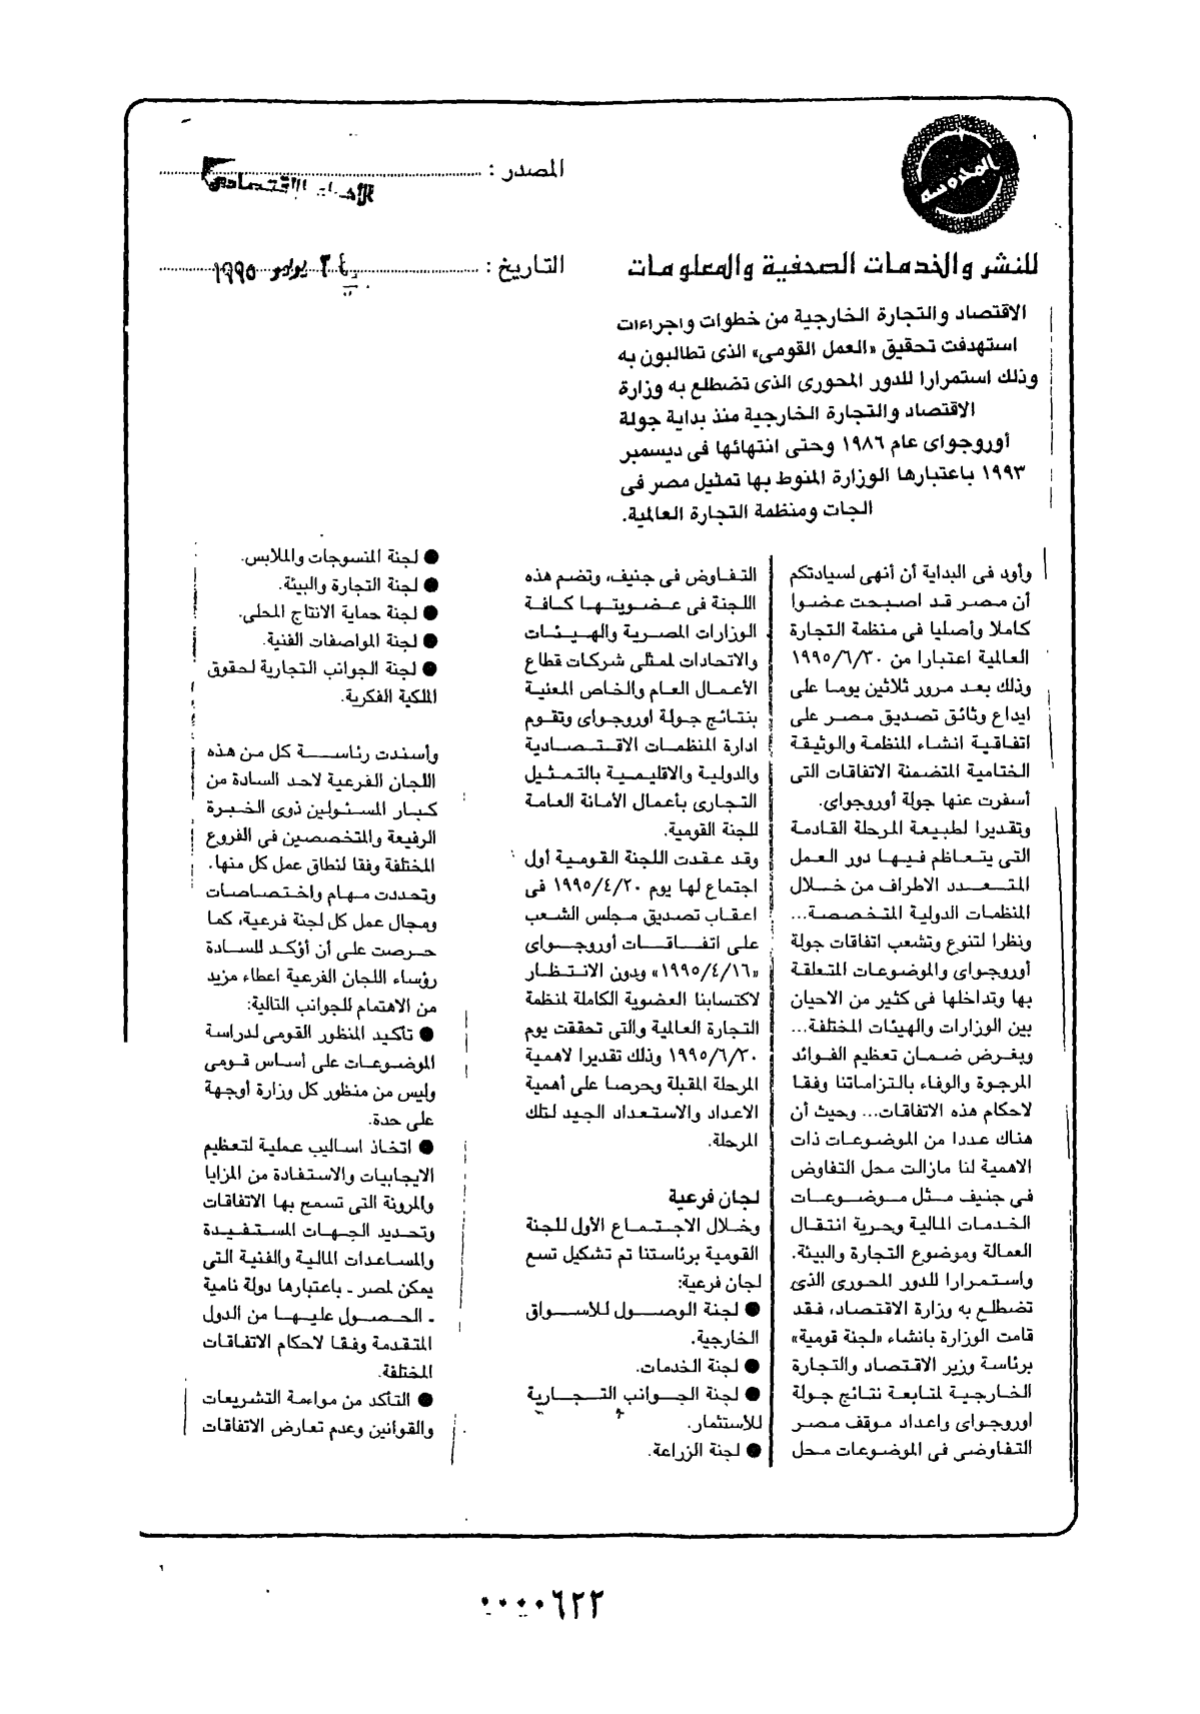 المدوسة
المصدر :
الأهرام الاقتصادى
للنشر والخدمات الصحفية والمعلومات
التاريخ :
٢٤ يوليو ١٩٩٥
الاقتصاد والتجارة الخارجية من خطوات واجراءات
استهدفت تحقيق «العمل القومى» الذى تطالبون به
وذلك استمرارا للدور المحورى الذى تضطلع به وزارة
الاقتصاد والتجارة الخارجية منذ بداية جولة
أوروجواى عام ١٩٨٦ وحتى انتهائها فى ديسمبر
١٩٩٣ باعتبارها الوزارة المنوط بها تمثيل مصر فى
الجات ومنظمة التجارة العالمية.
وأود فى البداية أن أنهى لسيادتكم
أن مصر قد اصبحت عضوا
كاملا وأصليا فى منظمة التجارة
العالمية اعتبارا من ١٩٩٥/٦/٣٠
وذلك بعد مرور ثلاثين يوما على
ايداع وثائق تصديق مصر على
اتفاقية انشاء المنظمة والوثيقة
الختامية المتضمنة الاتفاقات التى
أسفرت عنها جولة أوروجواى.
وتقديرا لطبيعة المرحلة القادمة
التى يتعاظم فيها دور العمل
المتعدد الاطراف من خلال
المنظمات الدولية المتخصصة...
ونظرا لتنوع وتشعب اتفاقات جولة
أوروجواى والموضوعات المتعلقة
بها وتداخلها فى كثير من الاحيان
بين الوزارات والهيئات المختلفة...
وبغرض ضمان تعظيم الفوائد
المرجوة والوفاء بالتزاماتنا وفقا
لاحكام هذه الاتفاقات... وحيث أن
هناك عددا من الموضوعات ذات
الاهمية لنا مازالت محل التفاوض
فى جنيف مثل موضوعات
الخدمات المالية وحرية انتقال
العمالة وموضوع التجارة والبيئة.
واستمرارا للدور المحورى الذى
تضطلع به وزارة الاقتصاد، فقد
قامت الوزارة بانشاء «لجنة قومية»
برئاسة وزير الاقتصاد والتجارة
الخارجية لمتابعة نتائج جولة
اوروجواى واعداد موقف مصر
التفاوضى فى الموضوعات محل
التفاوض فى جنيف، وتضم هذه
اللجنة فى عضويتها كافة
الوزارات المصرية والهيئات
والاتحادات لممثلى شركات قطاع
الأعمال العام والخاص المعنية
بنتائج جولة اوروجواى وتقوم
ادارة المنظمات الاقتصادية
والدولية والاقليمية بالتمثيل
التجارى بأعمال الأمانة العامة
للجنة القومية.
وقد عقدت اللجنة القومية أول
اجتماع لها يوم ١٩٩٥/٤/٢٠ فى
اعقاب تصديق مجلس الشعب
على اتفاقات أوروجواى
«١٩٩٥/٤/١٦» وبدون الانتظار
لاكتسابنا العضوية الكاملة لمنظمة
التجارة العالمية والتى تحققت يوم
١٩٩٥/٦/٣٠ وذلك تقديرا لاهمية
المرحلة المقبلة وحرصا على أهمية
الاعداد والاستعداد الجيد لتلك
المرحلة.
لجان فرعية
وخلال الاجتماع الأول للجنة
القومية برئاستنا تم تشكيل تسع
لجان فرعية:
● لجنة الوصول للأسواق
الخارجية.
● لجنة الخدمات.
● لجنة الجوانب التجارية
للاستثمار.
● لجنة الزراعة.
● لجنة المنسوجات والملابس.
● لجنة التجارة والبيئة.
● لجنة حماية الانتاج المحلى.
● لجنة المواصفات الفنية.
● لجنة الجوانب التجارية لحقوق
الملكية الفكرية.
وأسندت رئاسة كل من هذه
اللجان الفرعية لاحد السادة من
كبار المسئولين ذوى الخبرة
الرفيعة والمتخصصين فى الفروع
المختلفة وفقا لنطاق عمل كل منها.
وتحددت مهام واختصاصات
ومجال عمل كل لجنة فرعية، كما
حرصت على أن أؤكد للسادة
رؤساء اللجان الفرعية اعطاء مزيد
من الاهتمام للجوانب التالية:
● تأكيد المنظور القومى لدراسة
الموضوعات على أساس قومى
وليس من منظور كل وزارة أوجهة
على حدة.
● اتخاذ اساليب عملية لتعظيم
الايجابيات والاستفادة من المزايا
والمرونة التى تسمح بها الاتفاقات
وتحديد الجهات المستفيدة
والمساعدات المالية والفنية التى
يمكن لمصر ـ باعتبارها دولة نامية
ـ الحصول عليها من الدول
المتقدمة وفقا لاحكام الاتفاقات
المختلفة.
● التأكد من مواءمة التشريعات
والقوانين وعدم تعارض الاتفاقات
٠٠٠٠٦٢٢